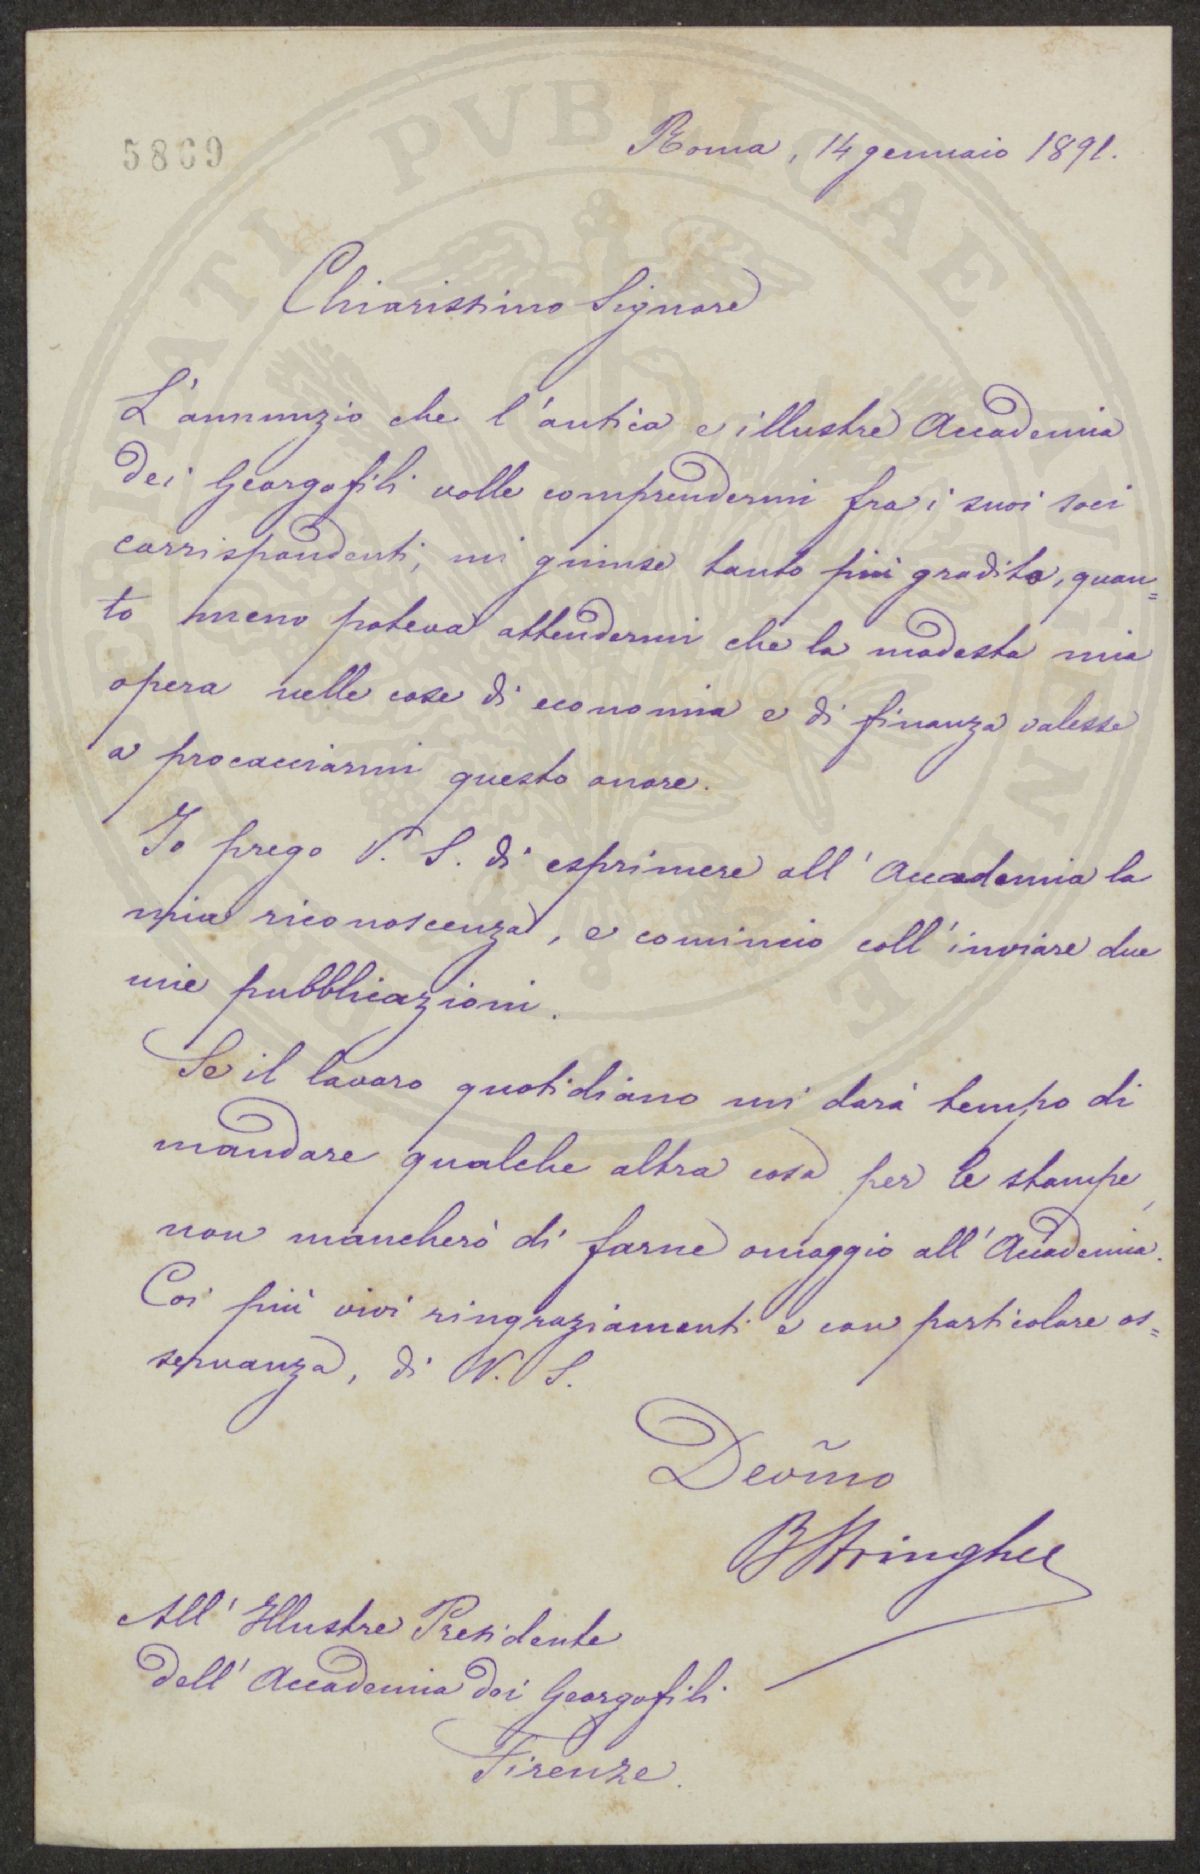 5869
Roma, 14 gennaio 1891.
Chiarissimo Signore
L'annunzio che l'antica e illustre Accademia
dei Georgofili volle comprendermi fra i suoi soci
corrispondenti, mi giunse tanto più gradito, quan=
to meno poteva attendermi che la modesta mia
opera nelle cose di economia e di finanza valesse
a procacciarmi questo onore.
Io prego V. S. di esprimere all'Accademia la
mia riconoscenza, e comincio coll'inviare due
mie pubblicazioni.
Se il lavoro quotidiano mi darà tempo di
mandare qualche altra cosa per le stampe,
non mancherò di farne omaggio all'Accademia.
Coi più vivi ringraziamenti e con particolare os=
servanza, di V. S.
Devmo
B Stringher
All'Illustre Presidente
dell'Accademia dei Georgofili
Firenze.